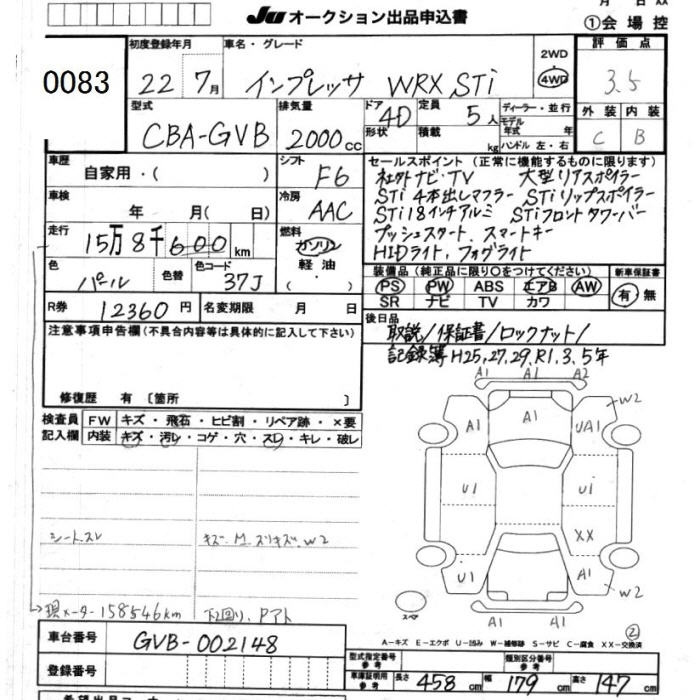 月 日 XX
JU オークション出品申込書
①会 場 控
0083
初度登録年月
22 7月
車名・グレード
インプレッサ WRX STi
2WD
4WD
評 価 点
3.5
型式
CBA-GVB
排気量
2000cc
ドア 4D
形状
定員 5人
積載 kg
ディーラー・並行
モデル年式 年
ハンドル 左・右
外 装 内 装
C B
車歴
自家用・( )
シフト
F6
セールスポイント (正常に機能するものに限ります)
社外ナビ・TV 大型リアスポイラー
STi 4本出しマフラー STiリップスポイラー
STi 18インチアルミ STiフロントタワーバー
プッシュスタート、スマートキー
HIDライト、フォグライト
車検
年 月( 日)
冷房
AAC
走行
15万8千600km
燃料
ガソリン
軽 油
( ・ )
色
パール
色替
色コード
37J
装備品 (純正品に限り○をつけてください)
PS PW ABS エアB AW
SR ナビ TV カワ
新車保証書
有・無
R券 12360円
名変期限 月 日
後日品
取説/保証書/ロックナット/
記録簿H25,27,29,R1,3,5年
注意事項申告欄(不具合内容等は具体的に記入して下さい)
修復歴 有 〔箇所 〕
検査員記入欄
FW キズ・飛石・ヒビ割・リペア跡・×要
内装 キズ・汚レ・コゲ・穴・スレ・キレ・破レ
シートスレ
キズ M スリキズ W2
現メーター158546km
下回り、Pアト
A1 A1 A2
A1 A1 UA1 W2
U1 U1
XX
U1 A1 W2
A1 A1
スペア
②
A-キズ E-エクボ U-凹み W-補修跡 S-サビ C-腐食 XX-交換済
車台番号
GVB-002148
登録番号
型式指定番号 参考
類別区分番号 参考
車庫証明用 参考
長さ 458cm
幅 179cm
高さ 147cm